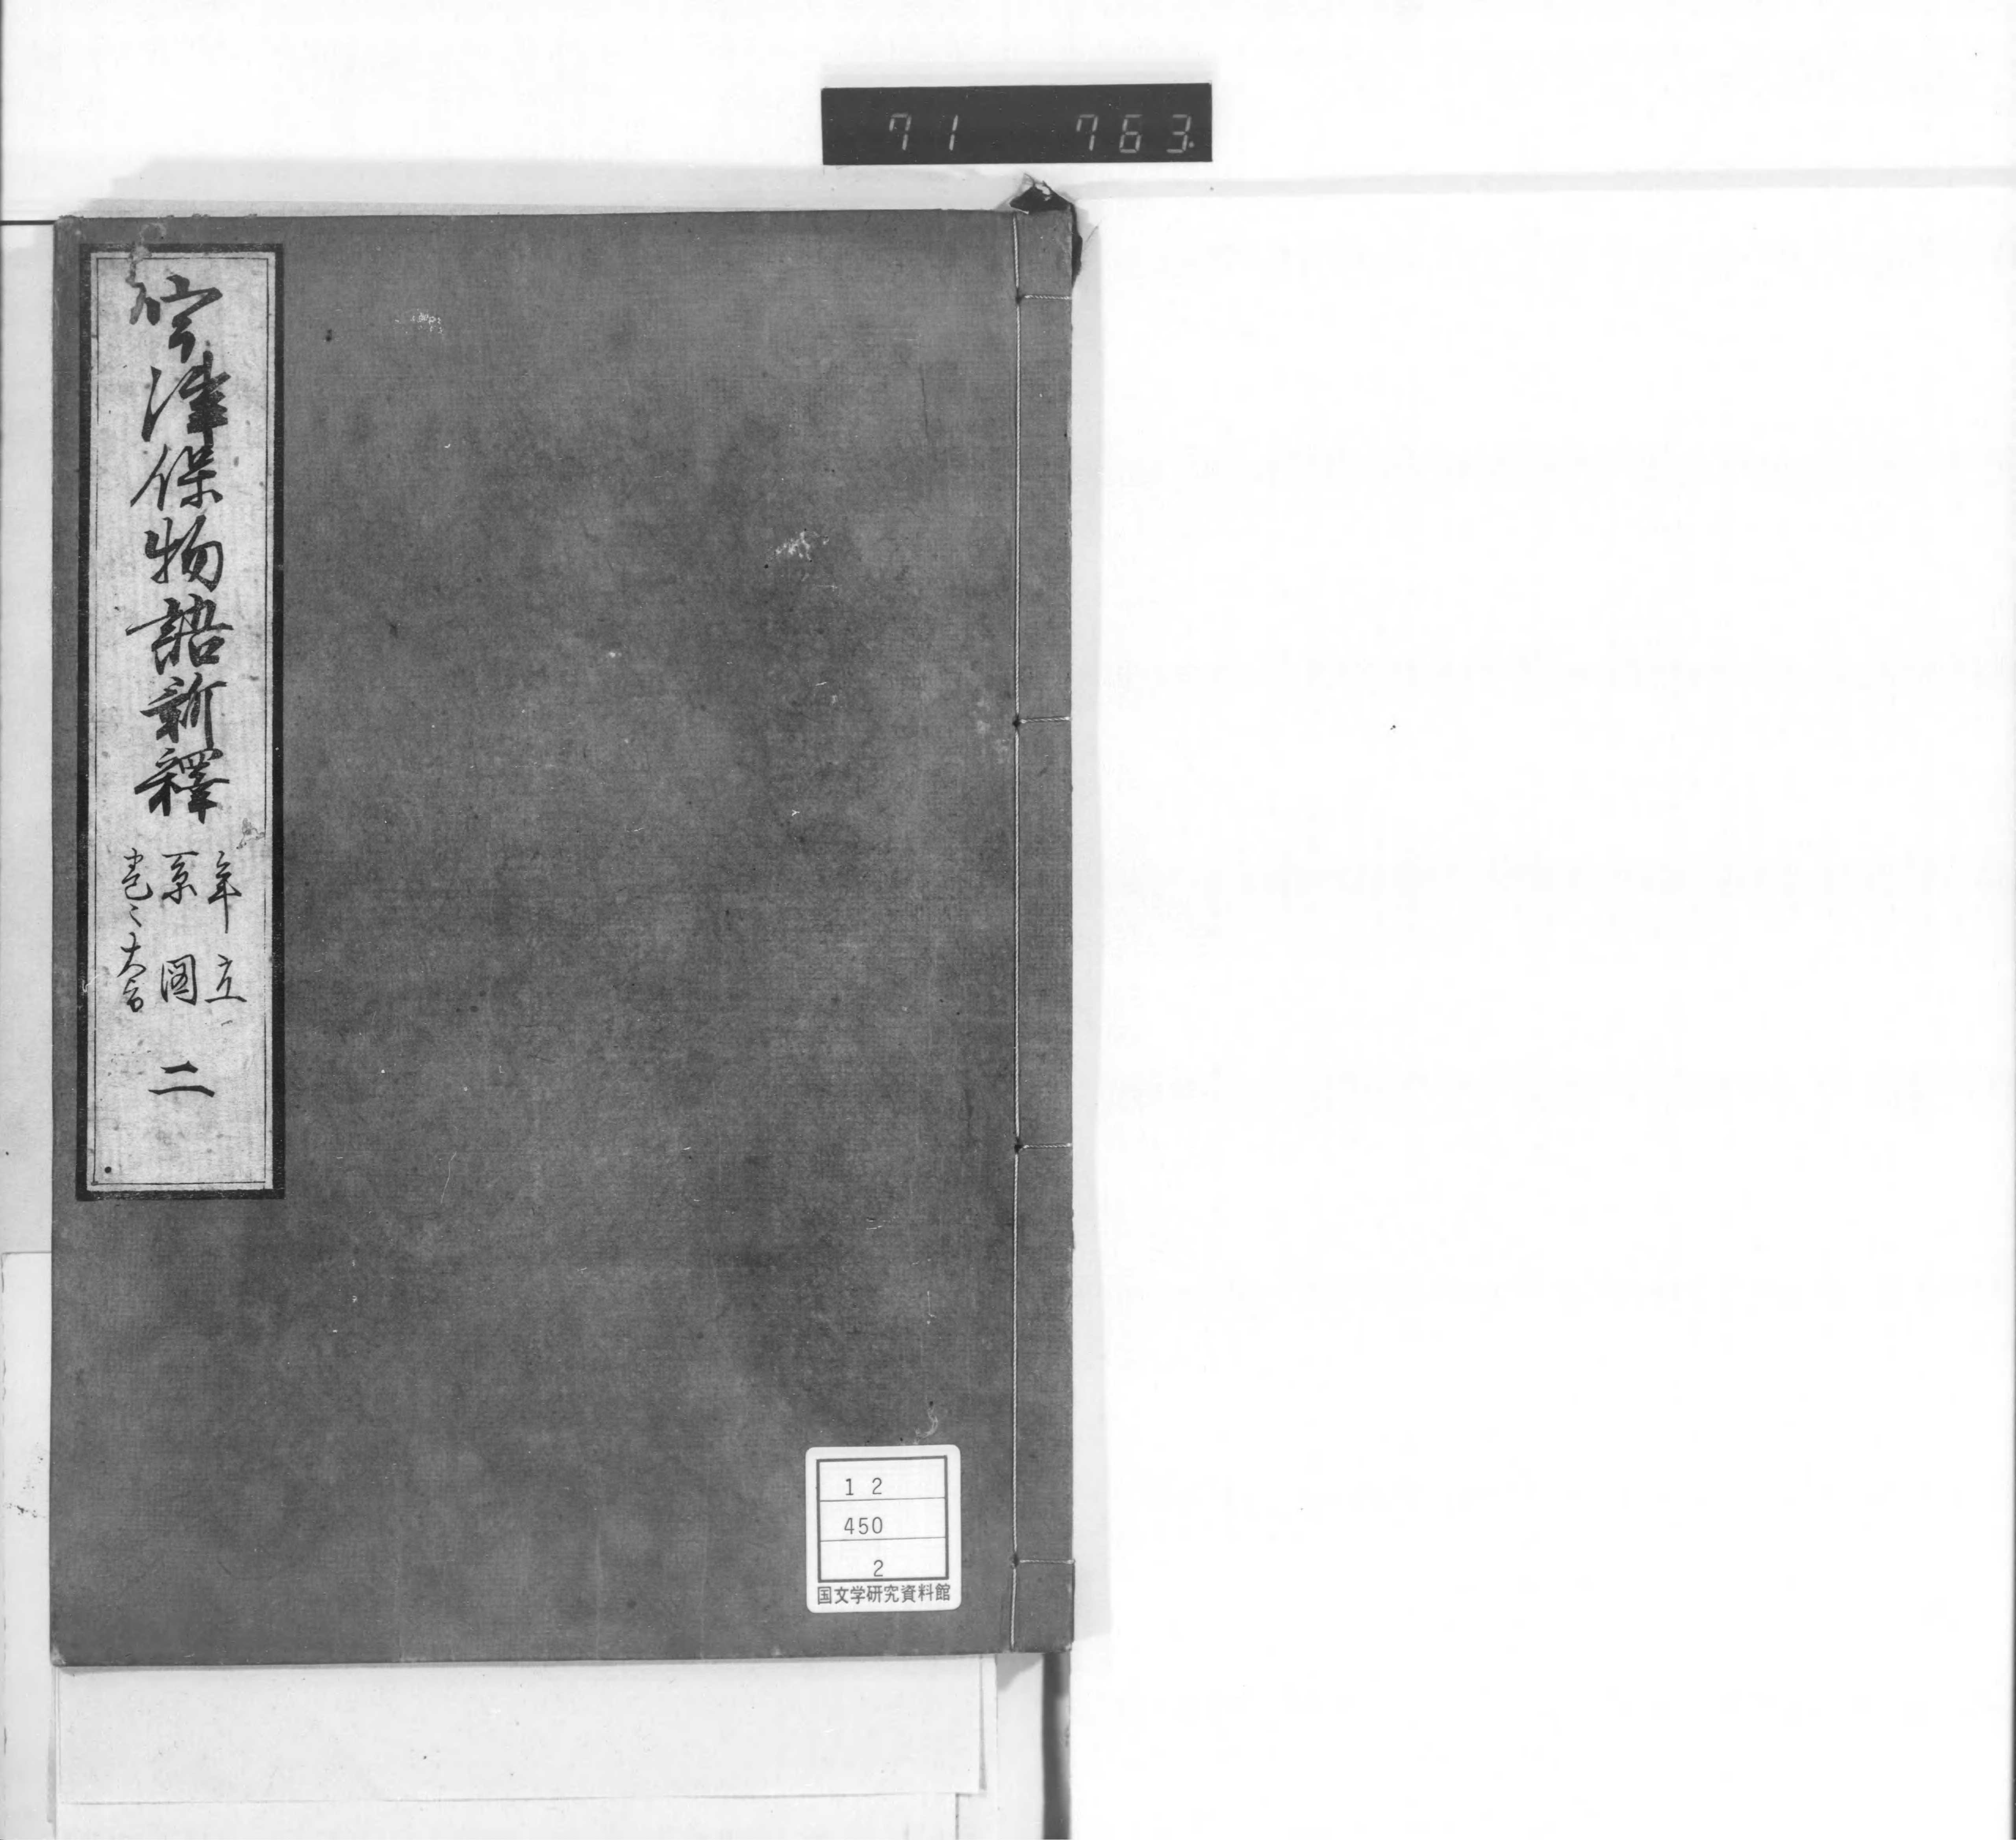 71 763
宇津保物語新釋
年立
系図
巻々大意
二
12
450
2
国文学研究資料館